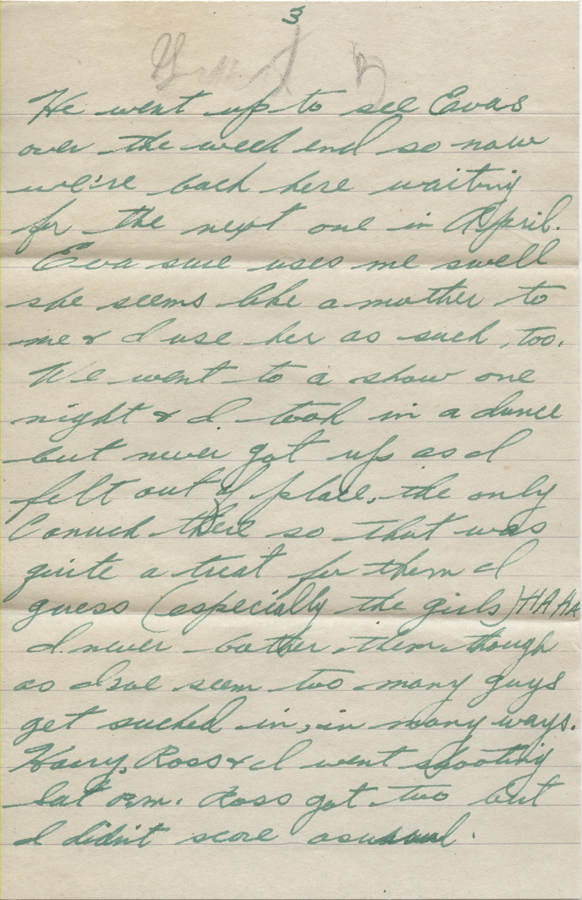 3
He went up to see Evas
over the week end so now
we're back here waiting
for the next one in April.
Eva sure uses me swell
she seems like a mother to
me & I use her as such, too.
We went to a show one
night & I took in a dance
but never got up as I
felt out of place, the only
Canuck there so that was
quite a treat for them I
guess (especially the girls) HA HA
I never bother them though
as I've seem too many guys
get sucked in, in many ways.
Harry, Ross & I went shooting
Sat. Ross got two but
I didn't score as usual.